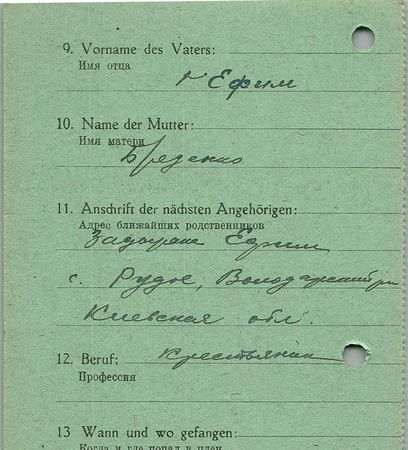 9. Vorname des Vaters:
Имя отца
Ефим
10. Name der Mutter:
Имя матери
11. Anschrift der nächsten Angehörigen:
Адрес ближайших родственников
Ефим
с. Рудое, Володарский
Киевская обл.
12. Beruf: крестьянин
Профессия
13 Wann und wo gefangen:
Когда и где попал в плен